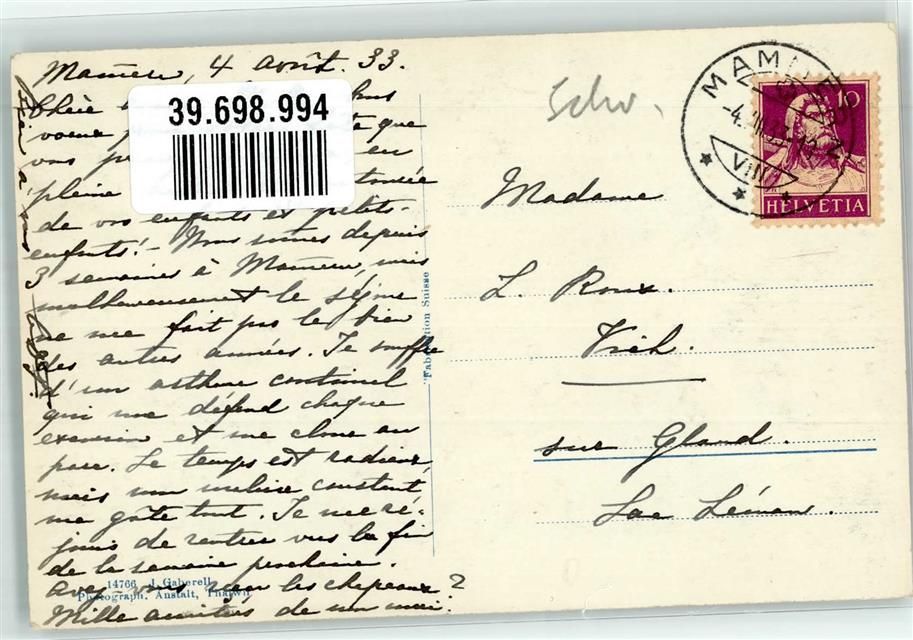 Mamern, 4 août. 33.
Chère
voeux que
vous en
pleine
de vos enfants et petits-
enfants! - Nous sommes depuis
3 semaines à Mamern, mais
malheureusement le séjour
ne me fait pas le bien
des autres années. Je souffre
d'un asthme continuel
qui me défend chaque
excursion et me cloue au
parc. Le temps est radieux,
mais mon malaise constant,
me gâte tout. Je me ré-
jouis de rentrer vers la fin
de la semaine prochaine.
Avez-vous reçu les chapeaux?
Mille amitiés de
39.698.994
Schw.
MAMMERN
VIII
10
HELVETIA
Madame
L. Roux.
Vich.
sur Gland.
Lac Léman.
Fabrication Suisse
14766 J. Gaberell
Photograph. Anstalt, Thalwil